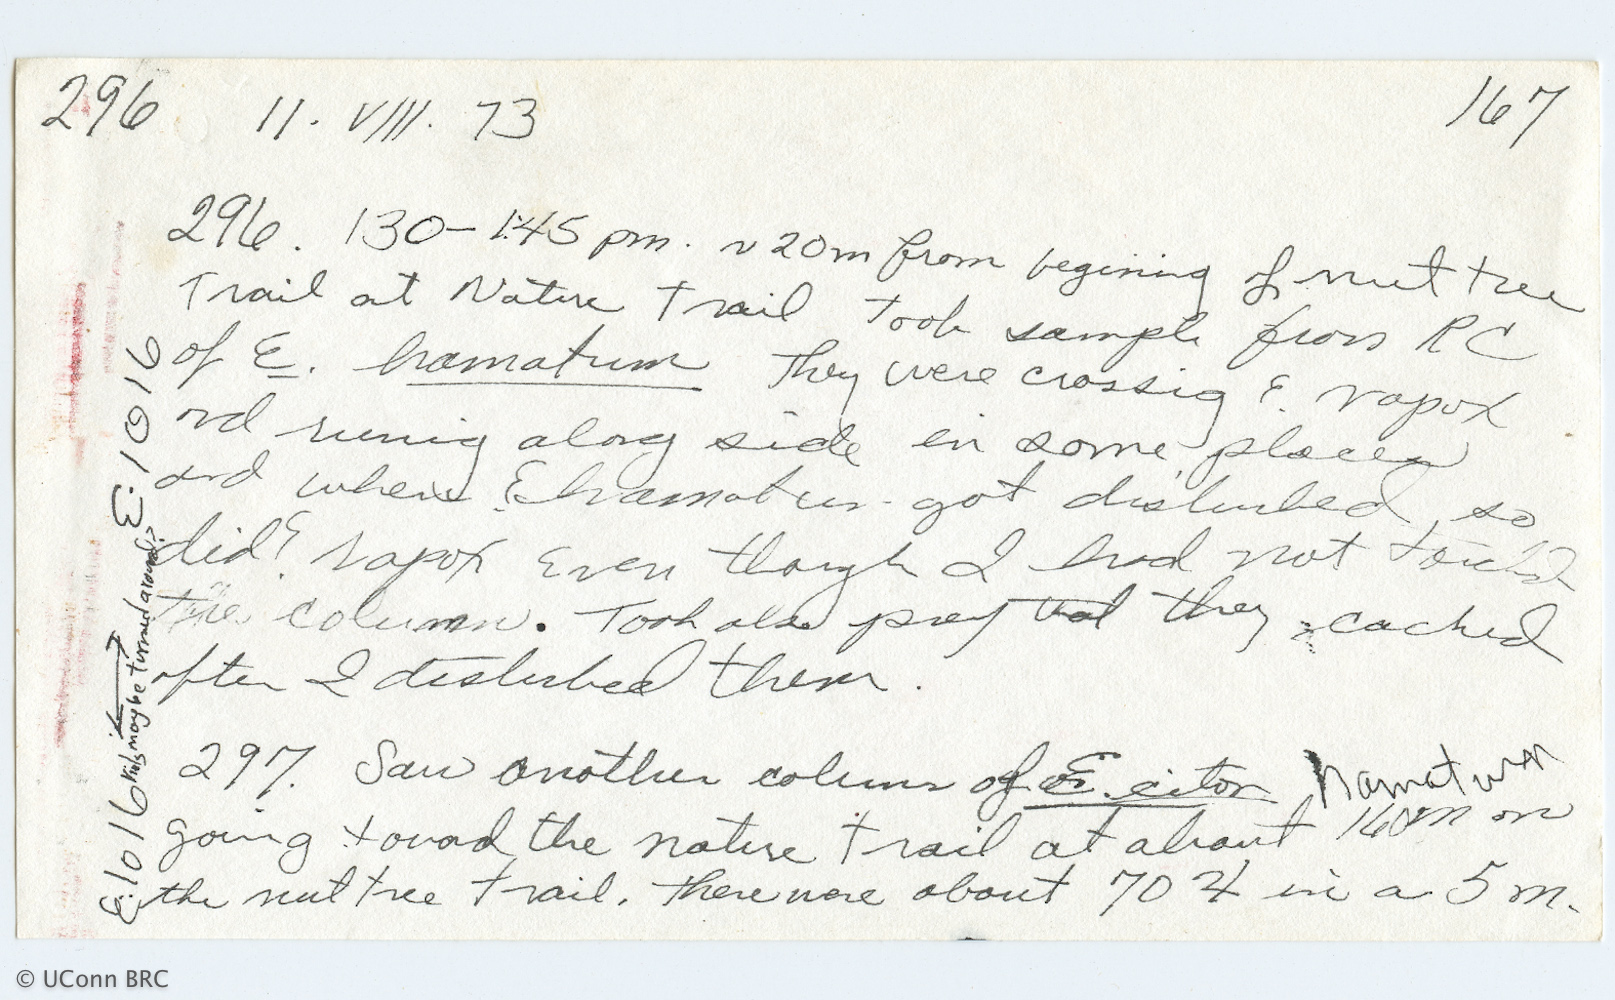 296 11. VIII. 73 167
296. 130-1:45 pm. ~20m from begining of nut tree
Trail at Nature Trail took sample from RC
of E. hamatum They were crossig E. rapax
nd runig along side in some places
and where E hamatum got disturbed, so
did E. rapax Even though I had not touched
the column. Took also prey that they cached
after I disturbed them.
297. Saw another column of E. citon hamatum
going toward the nature trail at about 160m on
the nut tree trail. There were about 70 in a 5 m.
E: 1016 Vials maybe turned around? E: 1016
© UConn BRC